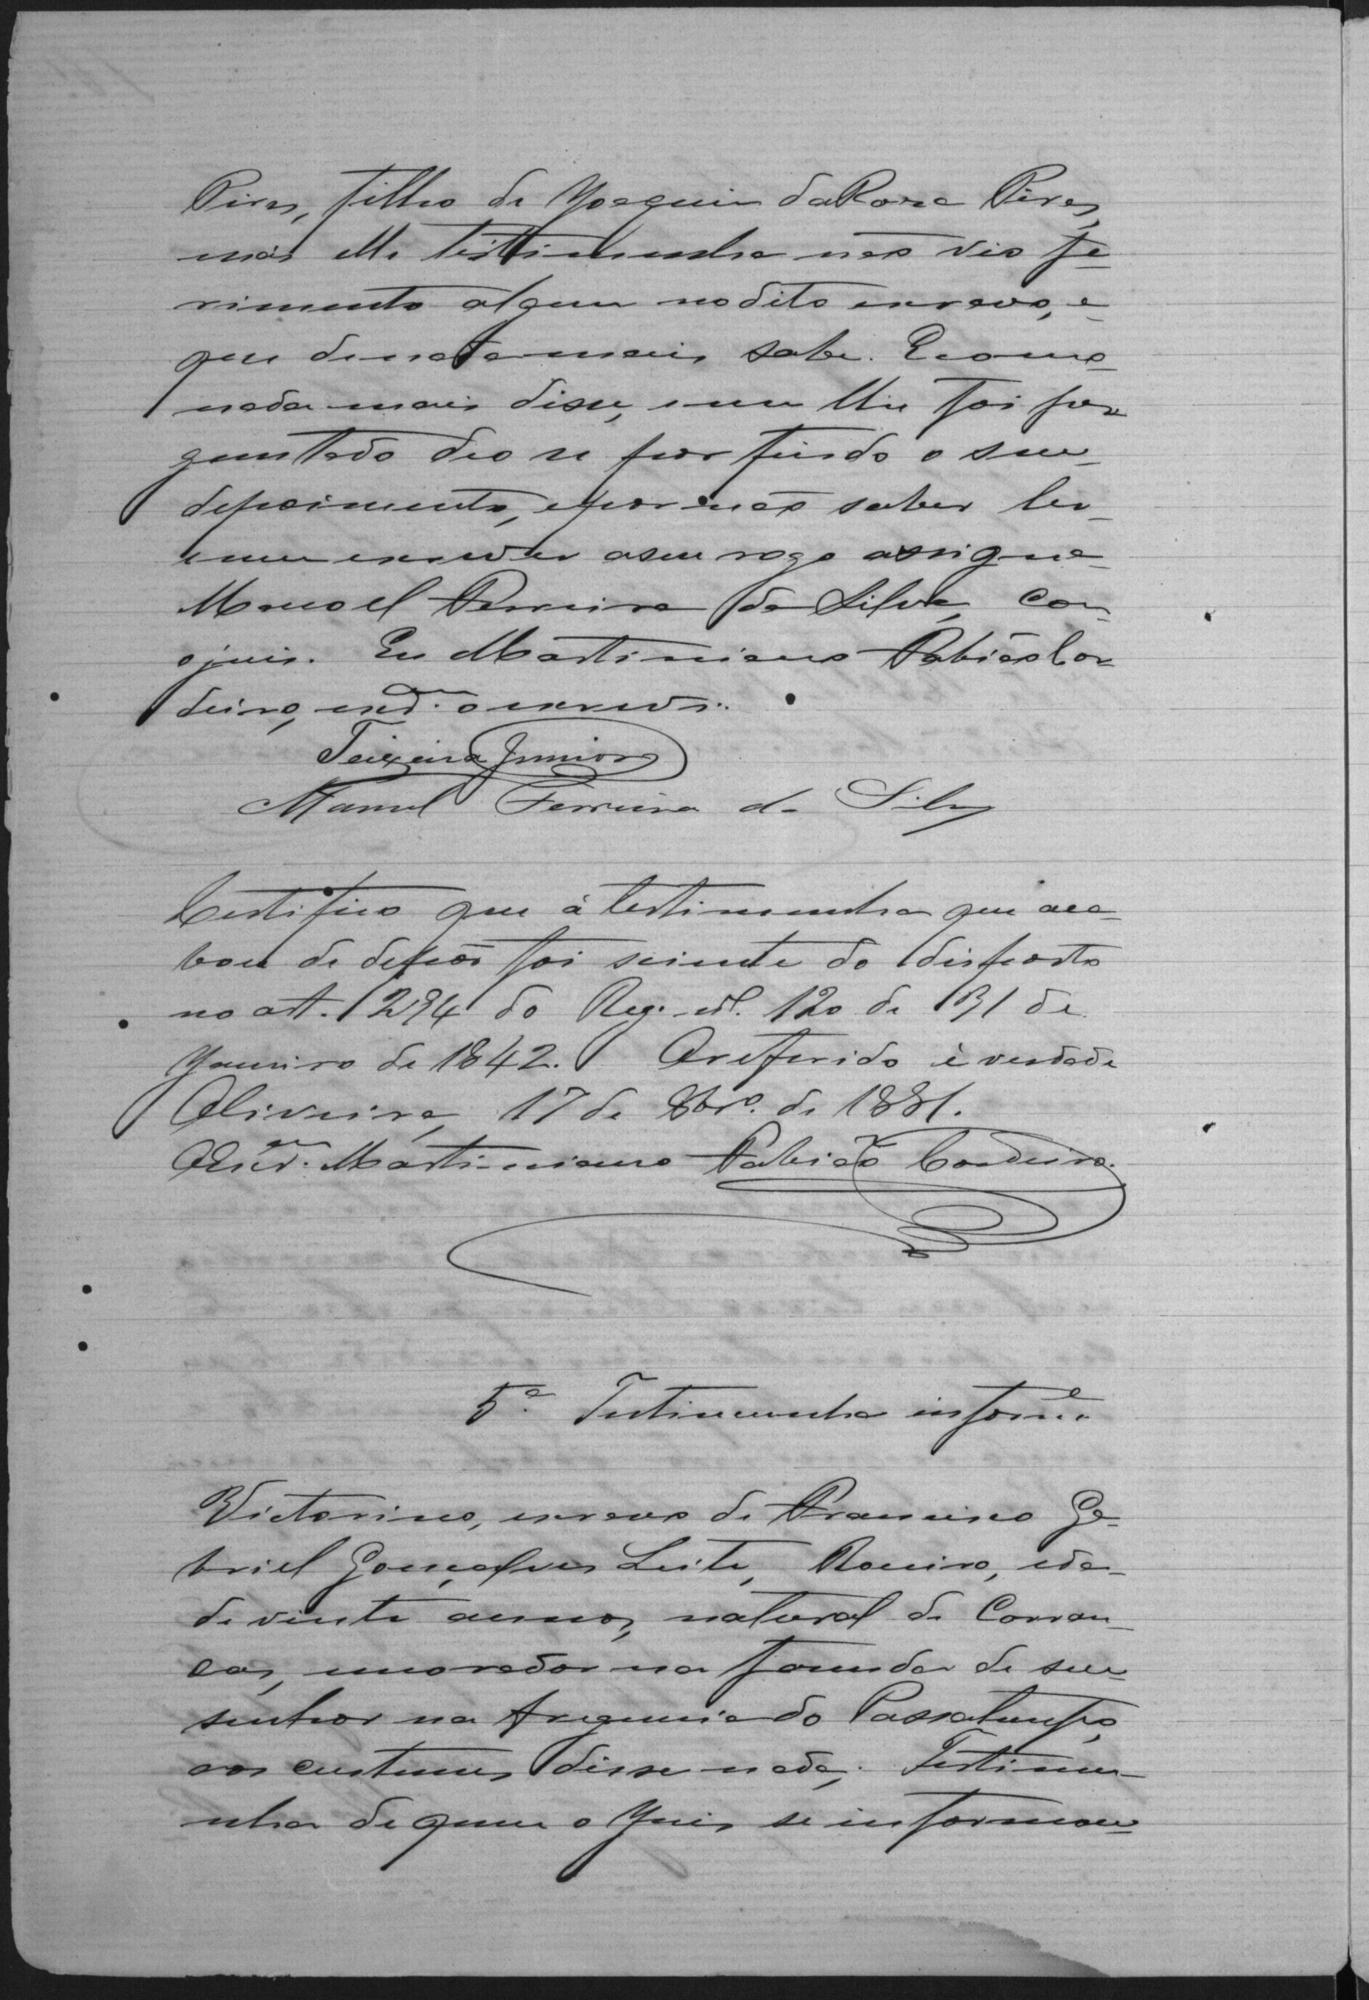 Pires, filho de Joaquim da Roza Pires,
mas elle testimunha não vio fe-
rimento algum no dito escravo, e
que de nada mais sabe. E como
nada mais disse, e nem lhe foi per
guntado deo se por findo o seu
depoimento, e por não saber ler
e nem escrever a seu rogo assigna
Manoel Ferreira da Silva, com
o juis. Eu Martiniano Fabião Cor
deiro, escr.am o escrevi.
Teixeira Junior
Manoel Ferreira da Silva
Certifico que á testimunha que aca-
bou de depôr foi sciente do disposto
no art. 294 do Reg. nº. 120 de 31 de
Janeiro de 1842. O referido é verdade
Oliveira, 17 de 8br.o de 1881.
O Escr.am Martiniano Fabião Cordeiro.
5.a Testimunha inform.e
Victorino, escravo de Francisco Ga-
briel Gonçalves Leite, Roceiro, ida-
de vinte annos, natural de Carran-
cas, morador na fazenda de seu
senhor na freguesia do Passatempo,
aos custumes disse nada. Testimu-
nha de quem o Juis se informou